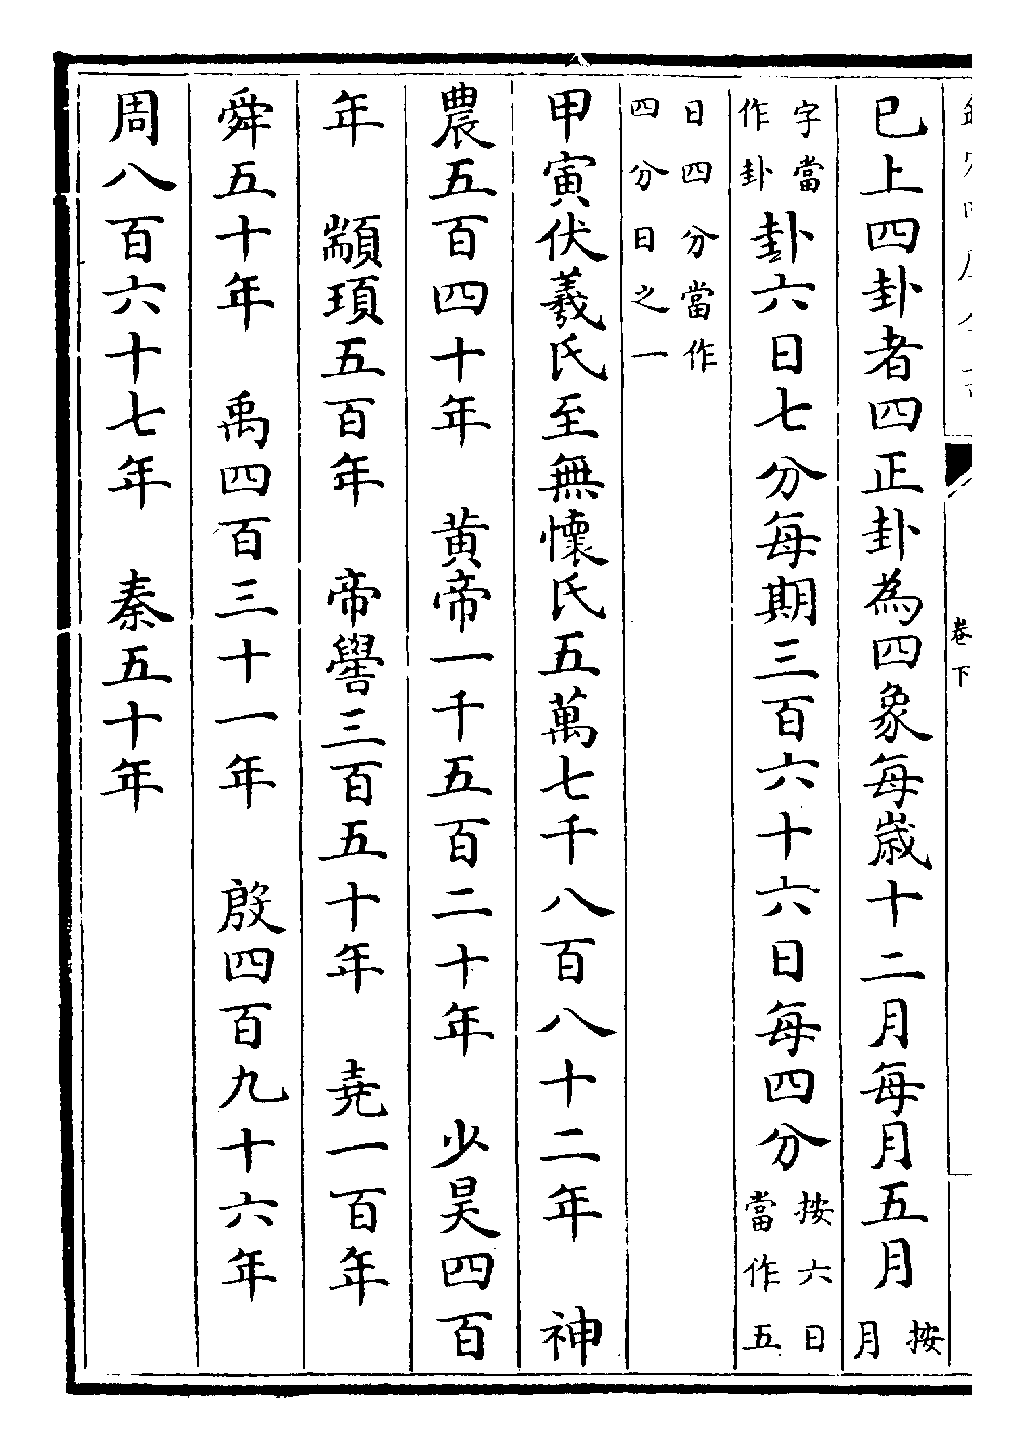 卷下
已上四卦者四正卦為四象每歲十二月每月五月按月
字當作卦卦六日七分每期三百六十六日每四分按六日當作五
日四分當作四分日之一
甲寅伏羲氏至無懷氏五萬七千八百八十二年　神
農五百四十年　黄帝一千五百二十年　少昊四百
年　顓頊五百年　帝嚳三百五十年　堯一百年
舜五十年　禹四百三十一年　殷四百九十六年
周八百六十七年　秦五十年